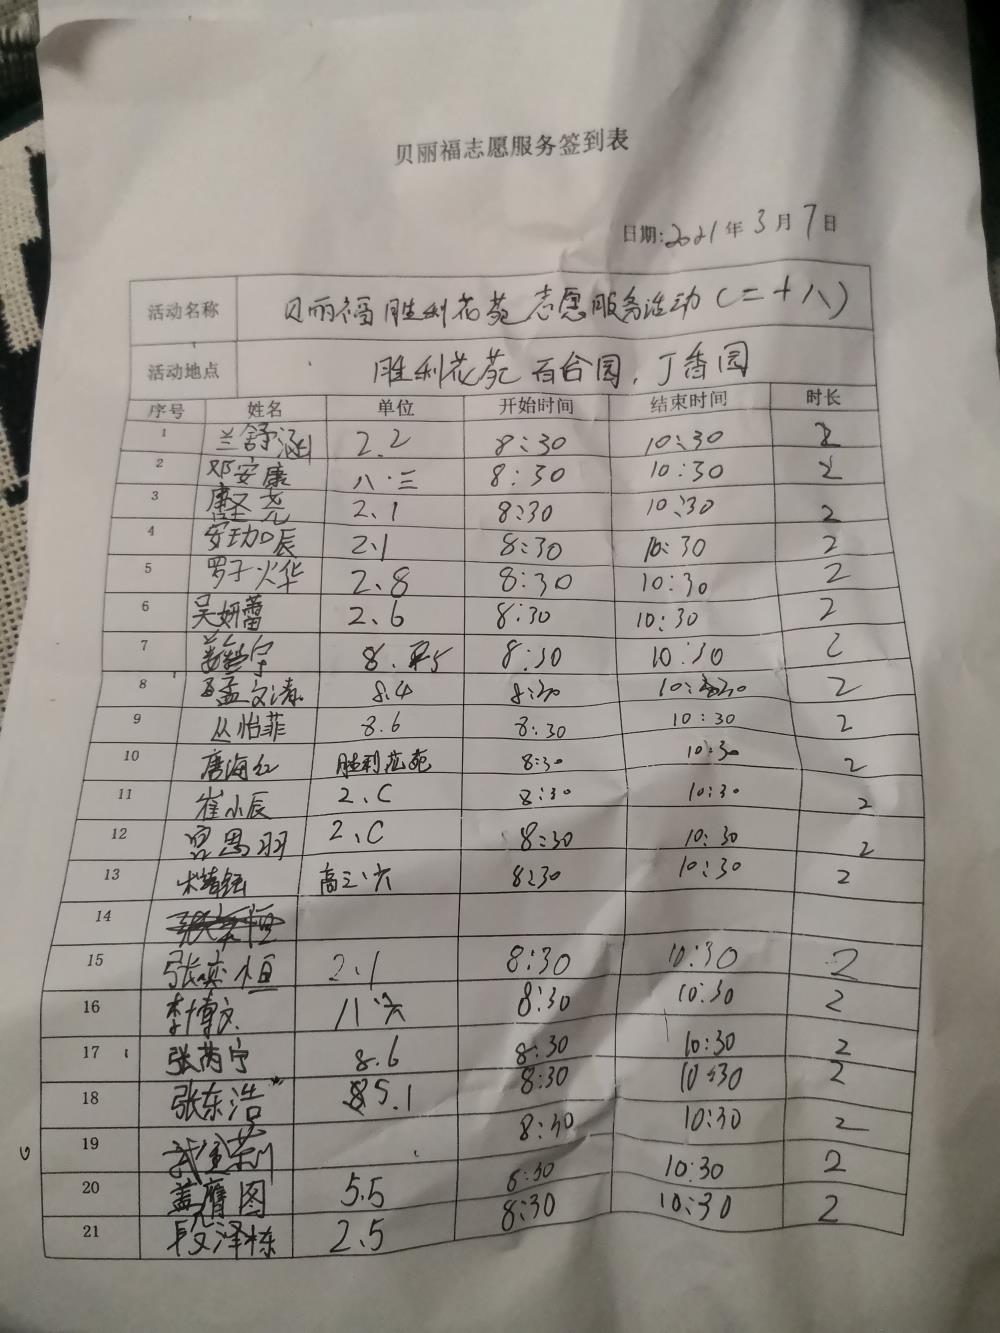 贝丽福志愿服务签到表
日期:2021年3月7日
活动名称 贝丽福胜利花苑志愿服务活动(二十八)
活动地点 胜利花苑百合园,丁香园
序号 姓名 单位 开始时间 结束时间 时长
1 兰舒涵 2.2 8:30 10:30 2
2 邓安康 八.三 8:30 10:30 2
3 唐圣尧 2、1 8:30 10:30 2
4 安珈辰 2.1 8:30 10:30 2
5 罗子烨 2、8 8:30 10:30 2
6 吴妍蕾 2.6 8:30 10:30 2
7 8.5 8:30 10:30 2
8 孟文涛 8.4 8:30 10:30 2
9 丛怡菲 8.6 8:30 10:30 2
10 唐海红 胜利花苑 8:30 10:30 2
11 崔小辰 2、C 8:30 10:30 2
12 宫思羽 2、C 8:30 10:30 2
13 高三、六 8:30 10:30 2
14
15 张奕恒 2.1 8:30 10:30 2
16 李博文 八、六 8:30 10:30 2
17 张芮宁 8.6 8:30 10:30 2
18 张东浩 5.1 8:30 10:30 2
19 8:30 10:30 2
20 盖鹰图 5.5 8:30 10:30 2
21 段泽栋 2.5 8:30 10:30 2